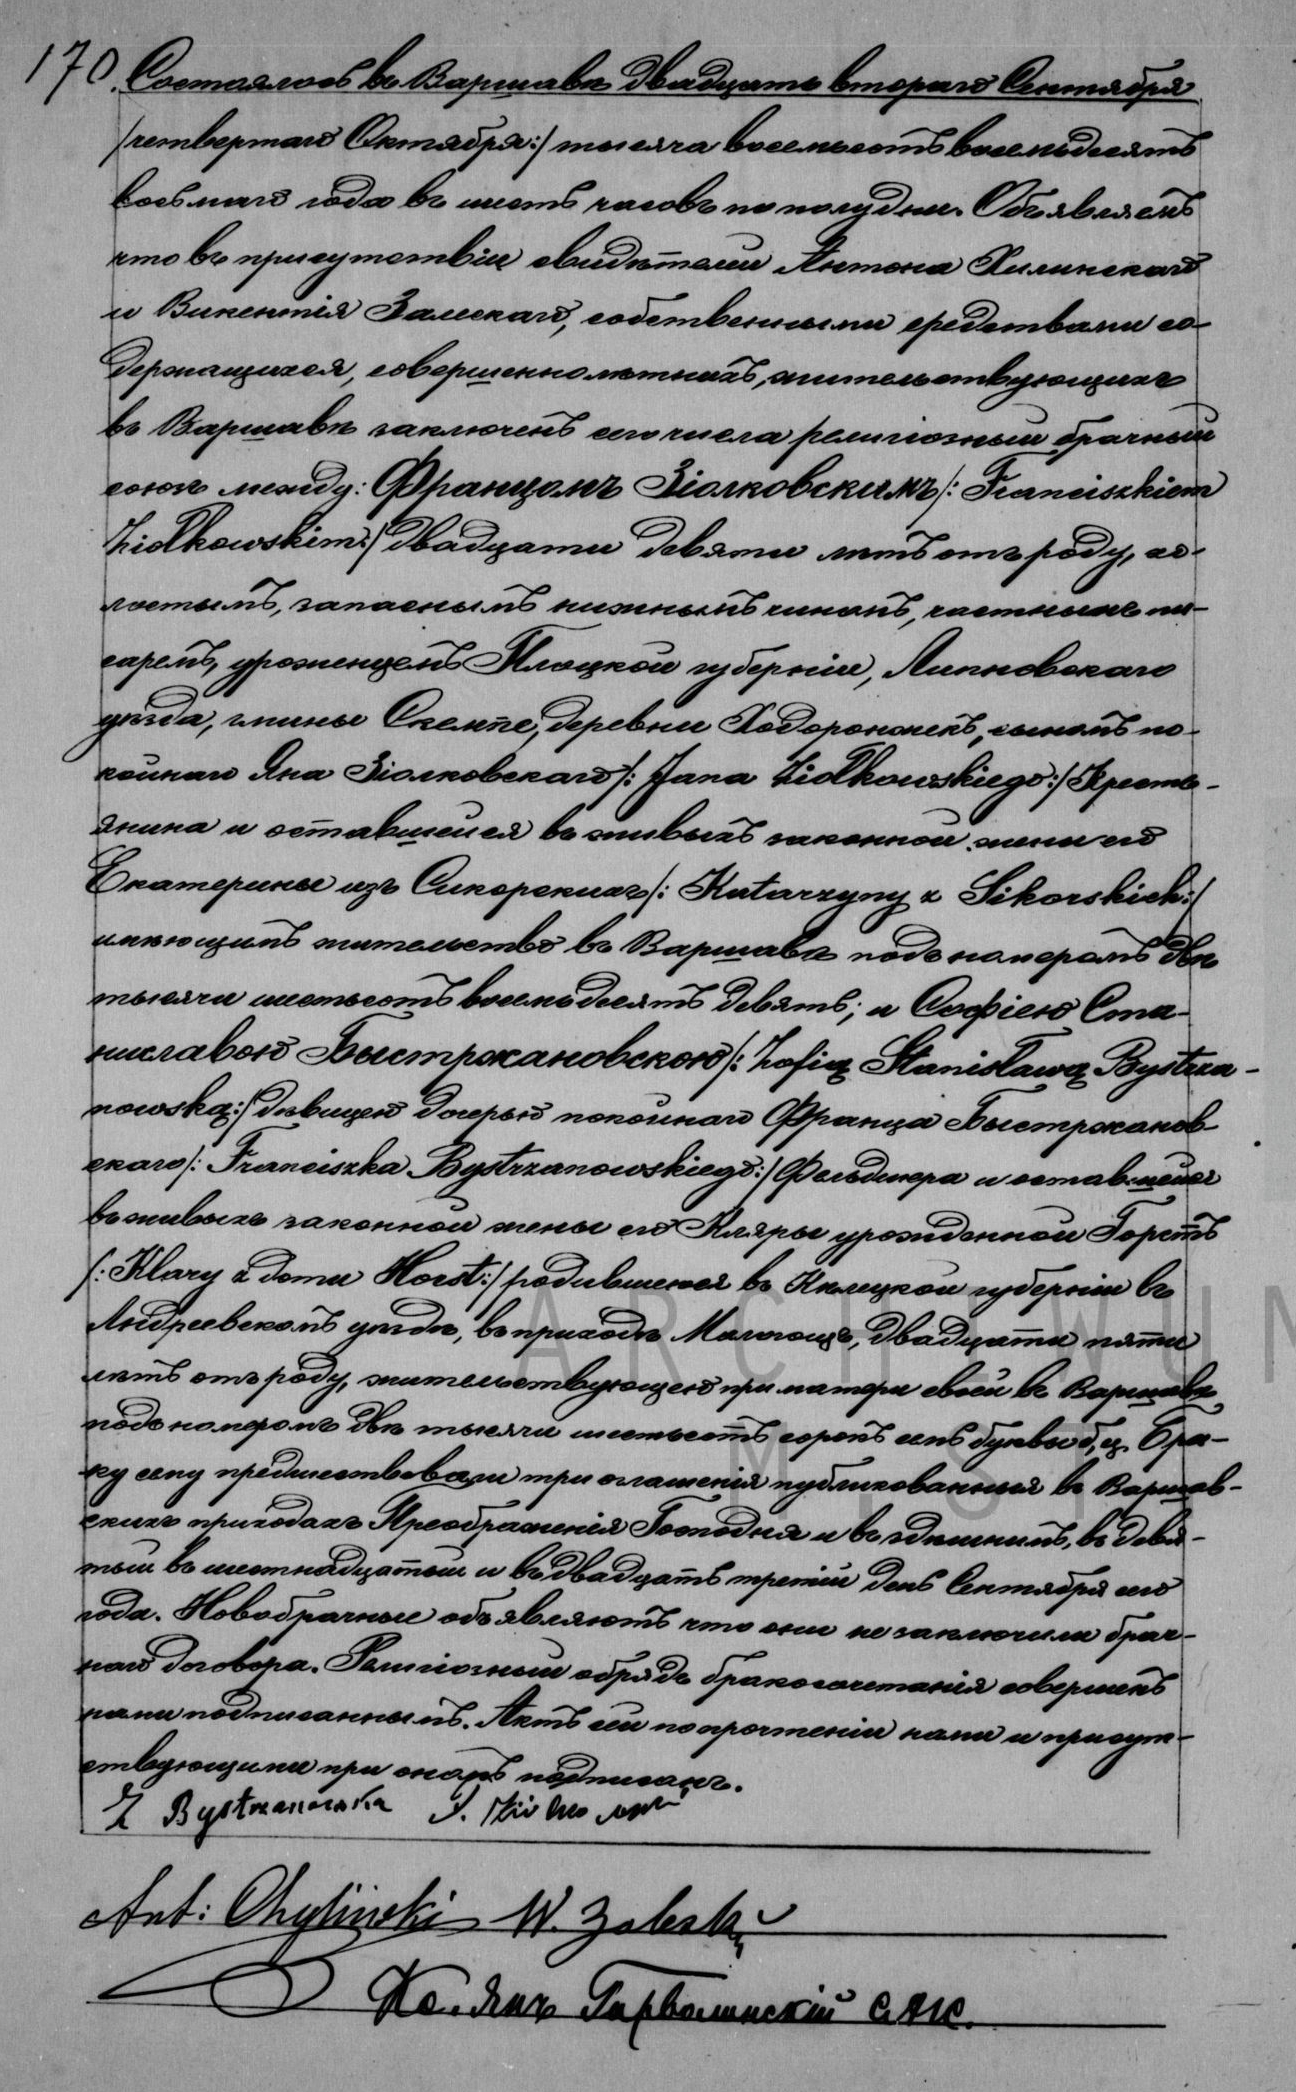 170. Состоялось въ Варшавѣ двадцать втораго Сентября
/четвертаго Октября:/ тысяча восемьсотъ восемьдесятъ
восьмаго года въ шесть часовъ по полудни. Объявляемъ
что въ присутствіи свидѣтели Антона Хилинскаго
и Викентія Залескаго, собственными средствами со-
держащихся, совершеннолѣтнихъ, жительствующихъ
въ Варшавѣ заключенъ сего числа религіозный брачный
союзъ между: Францомъ Зіолковскимъ /: Franciszkiem
Ziółkowskim:/ двадцати девяти лѣтъ отъ роду, хо-
лостымъ, запаснымъ нижнымъ чиномъ, частнымъ пи-
саремъ, уроженцемъ Плоцкой губерніи, Липновскаго
уѣзда, гмины Скемпе, деревни Ходоронжекъ, сыномъ по-
койнаго Яна Зіолковскаго /: Jana Ziółkowskiego:/ Кресть-
янина и оставшейся въ живыхъ законной жены его
Екатерины изъ Сикорскихъ /: Katarzyny z Sikorskich:/
имѣющимъ жительство въ Варшавѣ подъ номеромъ двѣ
тысячи шестьсотъ восемьдесятъ девять; и Софіею Ста-
ниславою Быстржановскою /: Zofią Stanisławą Bystrza-
nowską:/ дѣвицею дочерью покойнаго Франца Быстржанов-
скаго /: Franciszka Bystrzanowskiego:/ Фельдшера и оставшейся
въ живыхъ законной жены его Кляры урожденной Горстъ
/: Klary z domu Horst:/ родившеюся въ Кѣлецкой губерніи въ
Андреевскомъ уѣздѣ, въ приходѣ Малогощъ, двадцати пяти
лѣтъ отъ роду, жительствующею при матери своей въ Варшавѣ
подъ номеромъ двѣ тысячи шестьсотъ сорокъ семь буквы б, ц. Бра-
ку сему предшествовали три оглашенія публикованныя въ Варшав-
скихъ приходахъ Преображенія Господня и въ здѣшнимъ, въ девя-
тый въ шестнадцатый и въ двадцать третій день Сентября сего
года. Новобрачные объявляютъ что они не заключили брач-
наго договора. Религіозный обрядъ бракосочетанія совершенъ
нами подписаннымъ. Актъ сей по прочтеніи нами и присут-
ствующими при ономъ подписанъ.
Z Bystrzanowska
Ant: Chyliński W. Zaleski
Кс. Янъ Гарволинскій
ARCHIWUM